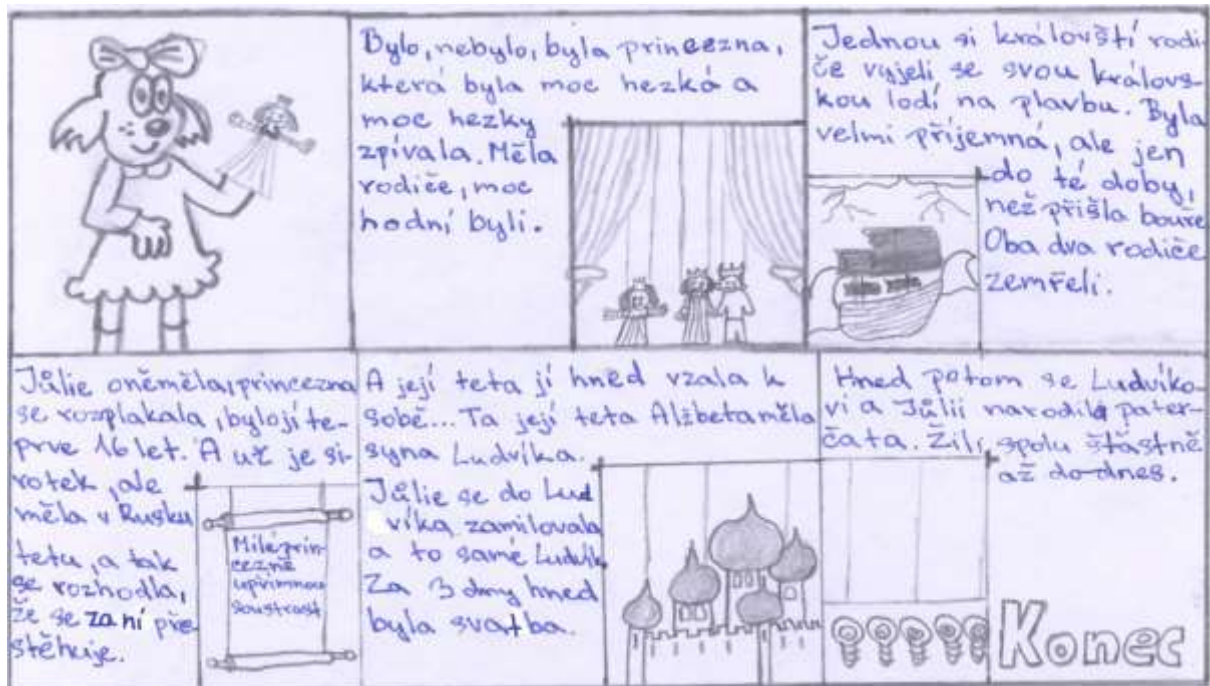 Bylo, nebylo, byla princezna,
která byla moc hezká a
moc hezky
zpívala. Měla
rodiče, moc
hodní byli.
Jednou si královští rodi-
če vyjeli se svou královs-
kou lodí na plavbu. Byla
velmi příjemná, ale jen
do té doby,
než přišla bouře
Oba dva rodiče
zemřeli.
Jůlie oněměla, princezna
se rozplakala, bylo jí te-
prve 16 let. A už je si-
rotek, ale
měla v Rusku
tetu, a tak
se rozhodla,
že se za ní pře
stěhuje.
Milé prin-
cezně
upřímnou
soustrast
A její teta jí hned vzala k
sobě... Ta její teta Alžbeta měla
syna Ludvíka.
Jůlie se do Lud
víka zamilovala
a to samé Ludvík
Za 3 dny hned
byla svatba.
Hned potom se Ludvíko-
vi a Jůlii narodila pater-
čata. Žili spolu štastně
až do dnes.
Konec